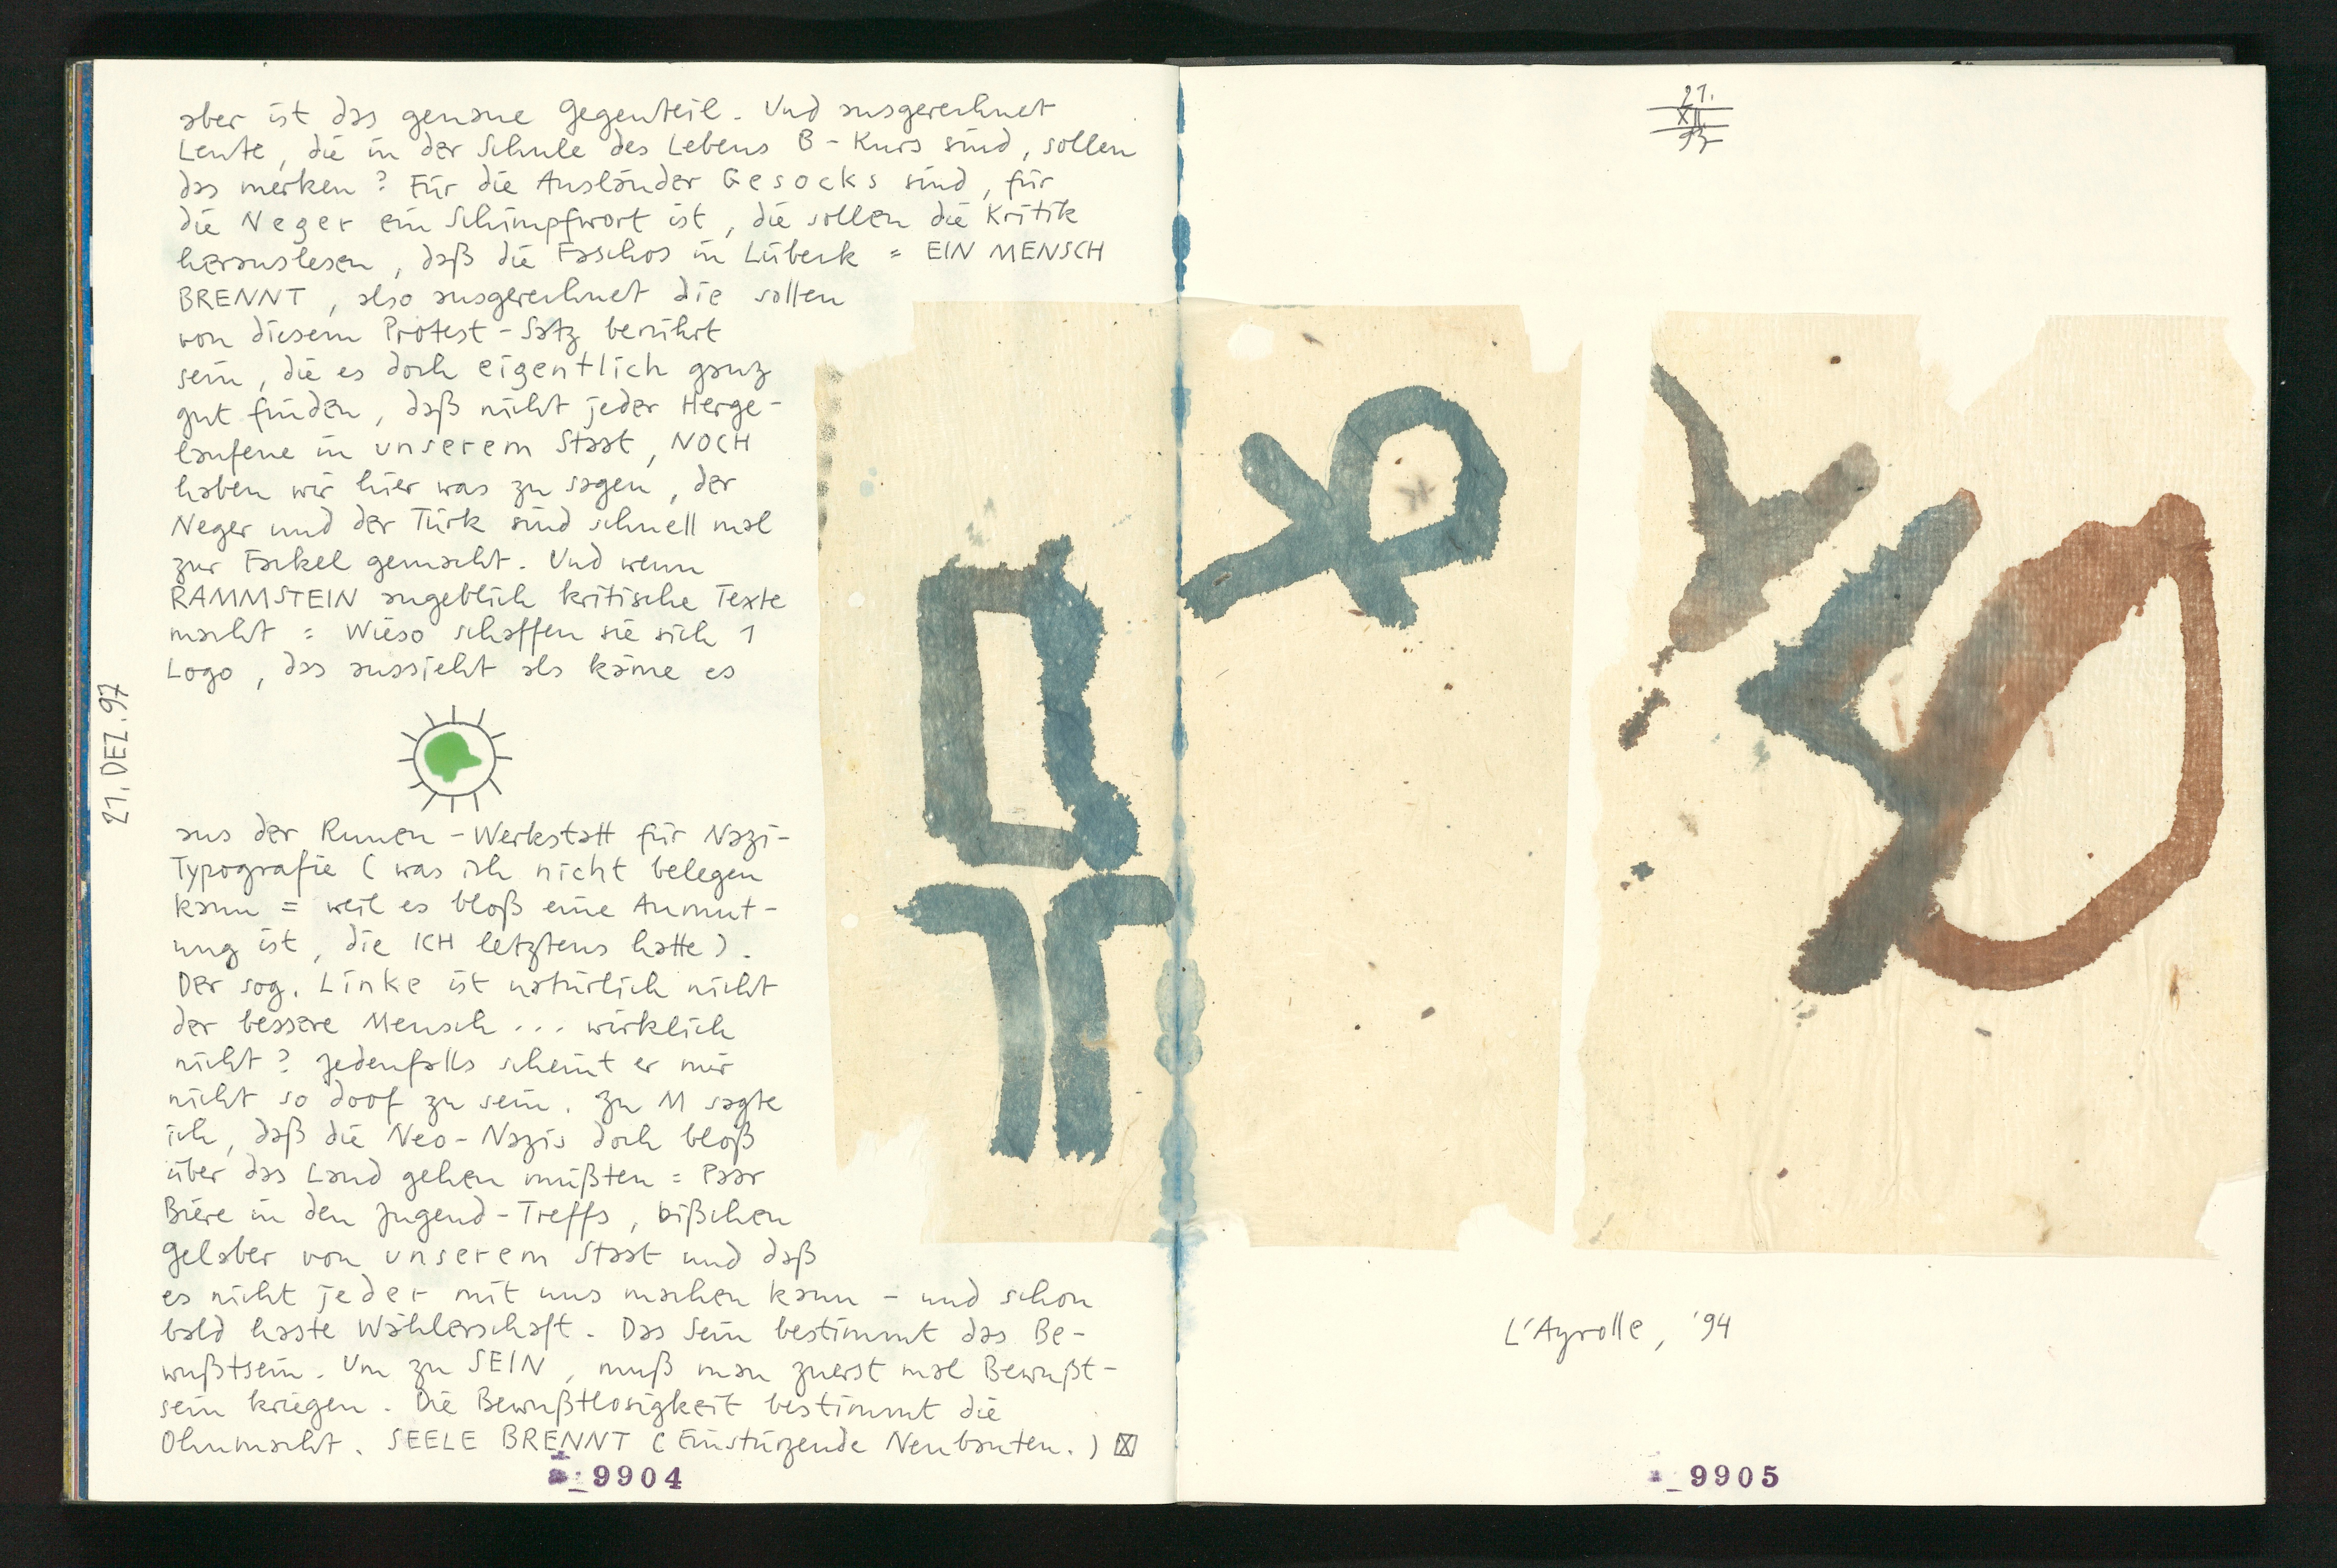 aber ist das genaue Gegenteil. Und ausgerechnet
Leute, die in der Schule des Lebens B-Kurs sind, sollen
das merken? Für die Ausländer Gesocks sind, für
die Neger ein Schimpfwort ist, die sollen die Kritik
herauslesen, daß die Faschos in Lübeck = EIN MENSCH
BRENNT, also ausgerechnet die sollen
von diesem Protest-Satz berührt
sein, die es doch eigentlich ganz
gut finden, daß nicht jeder Herge-
laufene in unserem Staat, NOCH
haben wir hier was zu sagen, der
Neger und der Türk sind schnell mal
zur Fackel gemacht. Und wenn
RAMMSTEIN angeblich kritische Texte
macht = Wieso schaffen sie sich 1
Logo, das aussieht als käme es
aus der Runen-Werkstatt für Nazi-
Typografie (was ich nicht belegen
kann = weil es bloß eine Anmut-
ung ist, die ICH letztens hatte).
Der sog. Linke ist natürlich nicht
der bessere Mensch... wirklich
nicht? Jedenfalls scheint er mir
nicht so doof zu sein. Zu M sagte
ich, daß die Neo-Nazis doch bloß
über das Land gehen müßten = Paar
Biere in den Jugend-Treffs, bißchen
Gelaber von unserem Staat und daß
es nicht jeder mit uns machen kann - und schon
bald haste Wählerschaft. Das Sein bestimmt das Be-
wußtsein. Um zu SEIN, muß man zuerst mal Bewußt-
sein kriegen. Die Bewußtlosigkeit bestimmt die
Ohnmacht. SEELE BRENNT (Einstürzende Neubauten.)
21. DEZ. 97
9904
21.
XII.
97
L'Ayrolle, '94
9905